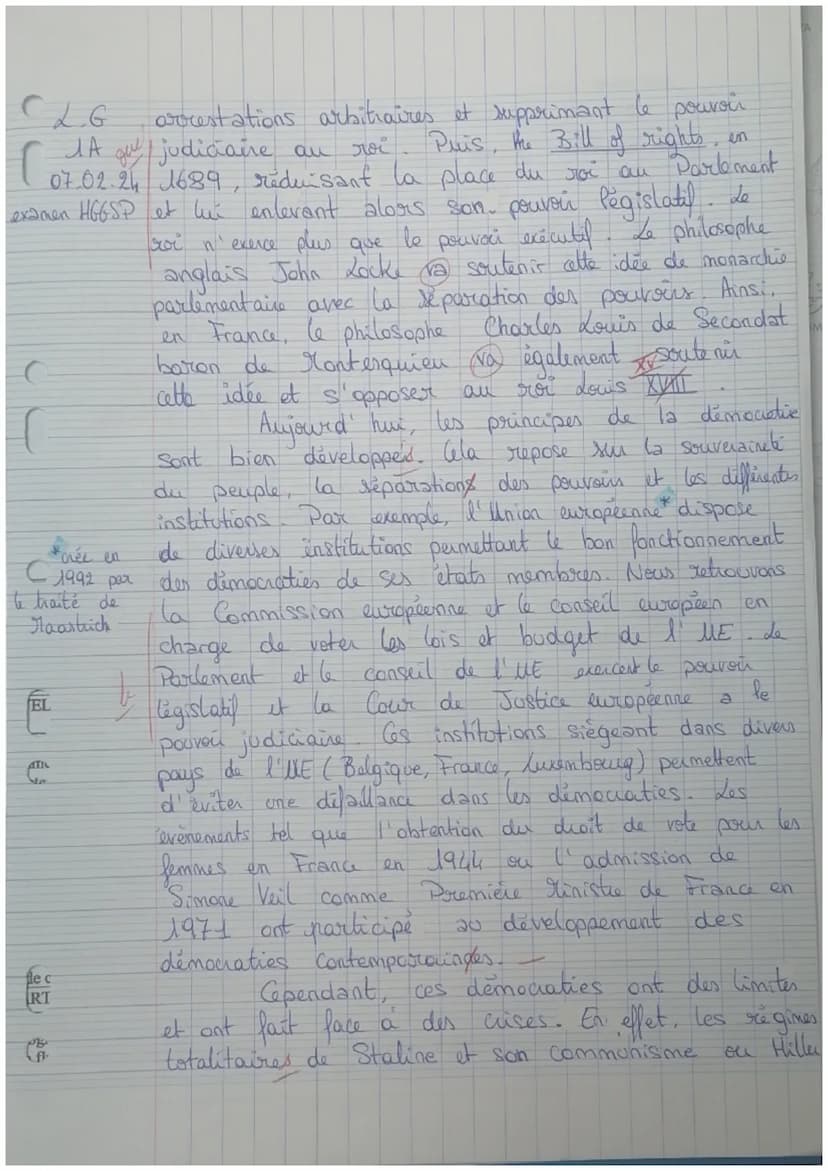 L.G arrestations arbitraires et supprimant le pouvoir
1A que judiciaire au roi. Puis, the Bill of rights, en
07.02.24 1689, réduisant la place du roi au Parlement
examen HGGSP et lui enlevant alors son pouvoir législatif. Le
roi n'exerce plus que le pouvoir exécutif. Le philosophe
anglais John Locke va soutenir cette idée de monarchie
parlementaire avec la séparation des pouvoirs. Ainsi,
en France, le philosophe Charles Louis de Secondat
baron de Montesquieu va également soutenir
cette idée et s'opposer au roi Louis XVIII XV.
Aujourd'hui, les principes de la démocratie
sont bien développés. Cela repose sur la souveraineté
du peuple, la séparations des pouvoirs et les différentes
institutions. Par exemple, l'Union européenne* dispose
*créé en de diverses institutions permettant le bon fonctionnement
1992 par des démocraties de ses états membres. Nous retrouvons
le traité de la Commission européenne et le conseil européen en
Maastrich charge de voter les lois et budget de l'UE. Le
Parlement et le conseil de l'UE exercent le pouvoir
EL législatif et la Cour de Justice européenne a le
pouvoir judiciaire. Ces institutions siégeant dans divers
pays de l'UE (Belgique, France, Luxembourg) permettent
d'éviter une défaillance dans les démocraties. Les
evènements tel que l'obtention du droit de vote pour les
femmes en France en 1944 ou l'admission de
Simone Veil comme Première Ministre de France en
1971 ont participé au développement des
démocraties contemporaines.
RT Cependant, ces démocraties ont des limites
et ont fait face à des crises. En effet, les régimes
totalitaires de Staline et son communisme ou Hitler